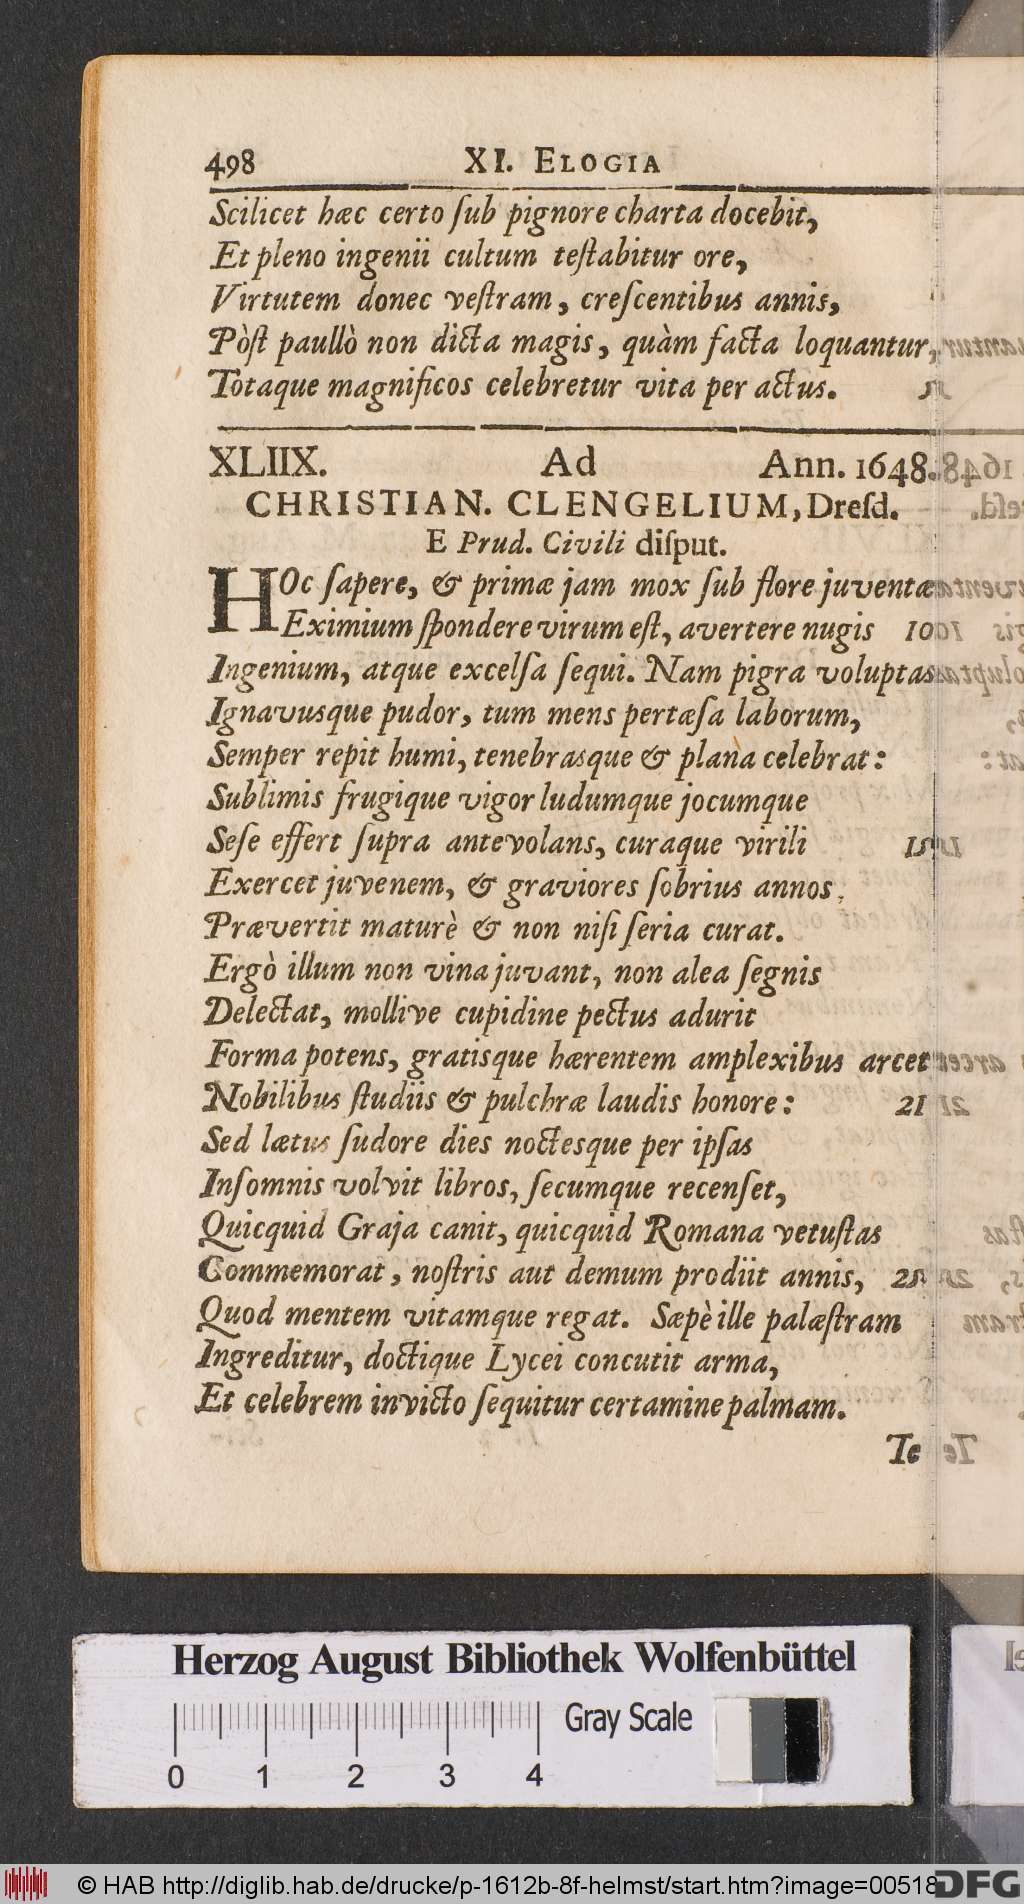 498 XI. ELOGIA
Scilicet hæc certo ſub pignore charta docebit,
Et pleno ingenii cultum teſtabitur ore,
Virtutem donec veſtram, creſcentibus annis,
Pòſt paullò non dicta magis, quàm facta loquantur,
Totaque magnificos celebretur vita per actus.
XLIIX. Ad Ann. 1648.
CHRISTIAN. CLENGELIUM, Dreſd.
E Prud. Civili diſput.
HOc ſapere, & primæ jam mox ſub flore juventæ
Eximium ſpondere virum eſt, avertere nugis 10
Ingenium, atque excelſa ſequi. Nam pigra voluptas
Ignavusque pudor, tum mens pertæſa laborum,
Semper repit humi, tenebrasque & plana celebrat:
Sublimis frugique vigor ludumque jocumque
Seſe effert ſupra antevolans, curaque virili 15
Exercet juvenem, & graviores ſobrius annos
Prævertit maturè & non niſi ſeria curat.
Ergò illum non vina juvant, non alea ſegnis
Delectat, mollive cupidine pectus adurit
Forma potens, gratisque hærentem amplexibus arcet
Nobilibus ſtudiis & pulchræ laudis honore: 21
Sed lætus ſudore dies noctesque per ipſas
Inſomnis volvit libros, ſecumque recenſet,
Quicquid Graja canit, quicquid Romana vetuſtas
Commemorat, noſtris aut demum prodiit annis, 25
Quod mentem vitamque regat. Sæpè ille palæſtram
Ingreditur, doctique Lycei concutit arma,
Et celebrem invicto ſequitur certamine palmam.
Te
Herzog August Bibliothek Wolfenbüttel
Gray Scale
0 1 2 3 4
© HAB http://diglib.hab.de/drucke/p-1612b-8f-helmst/start.htm?image=00518
DFG